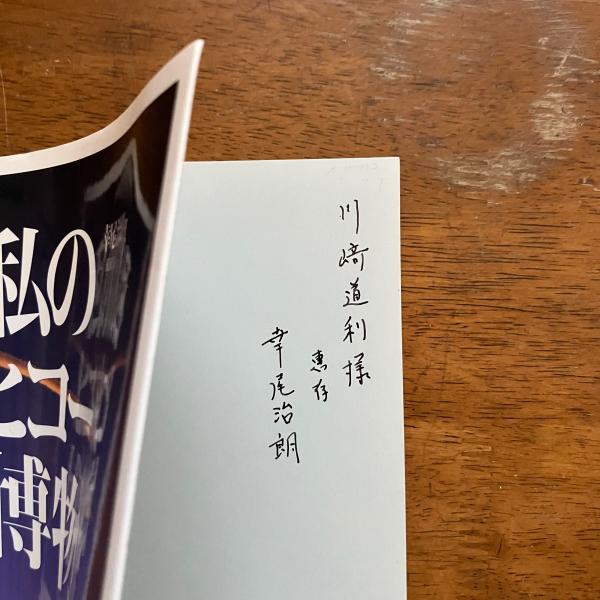 川﨑道利様
恵存
幸尾治朗
私の
ヒュー
博物